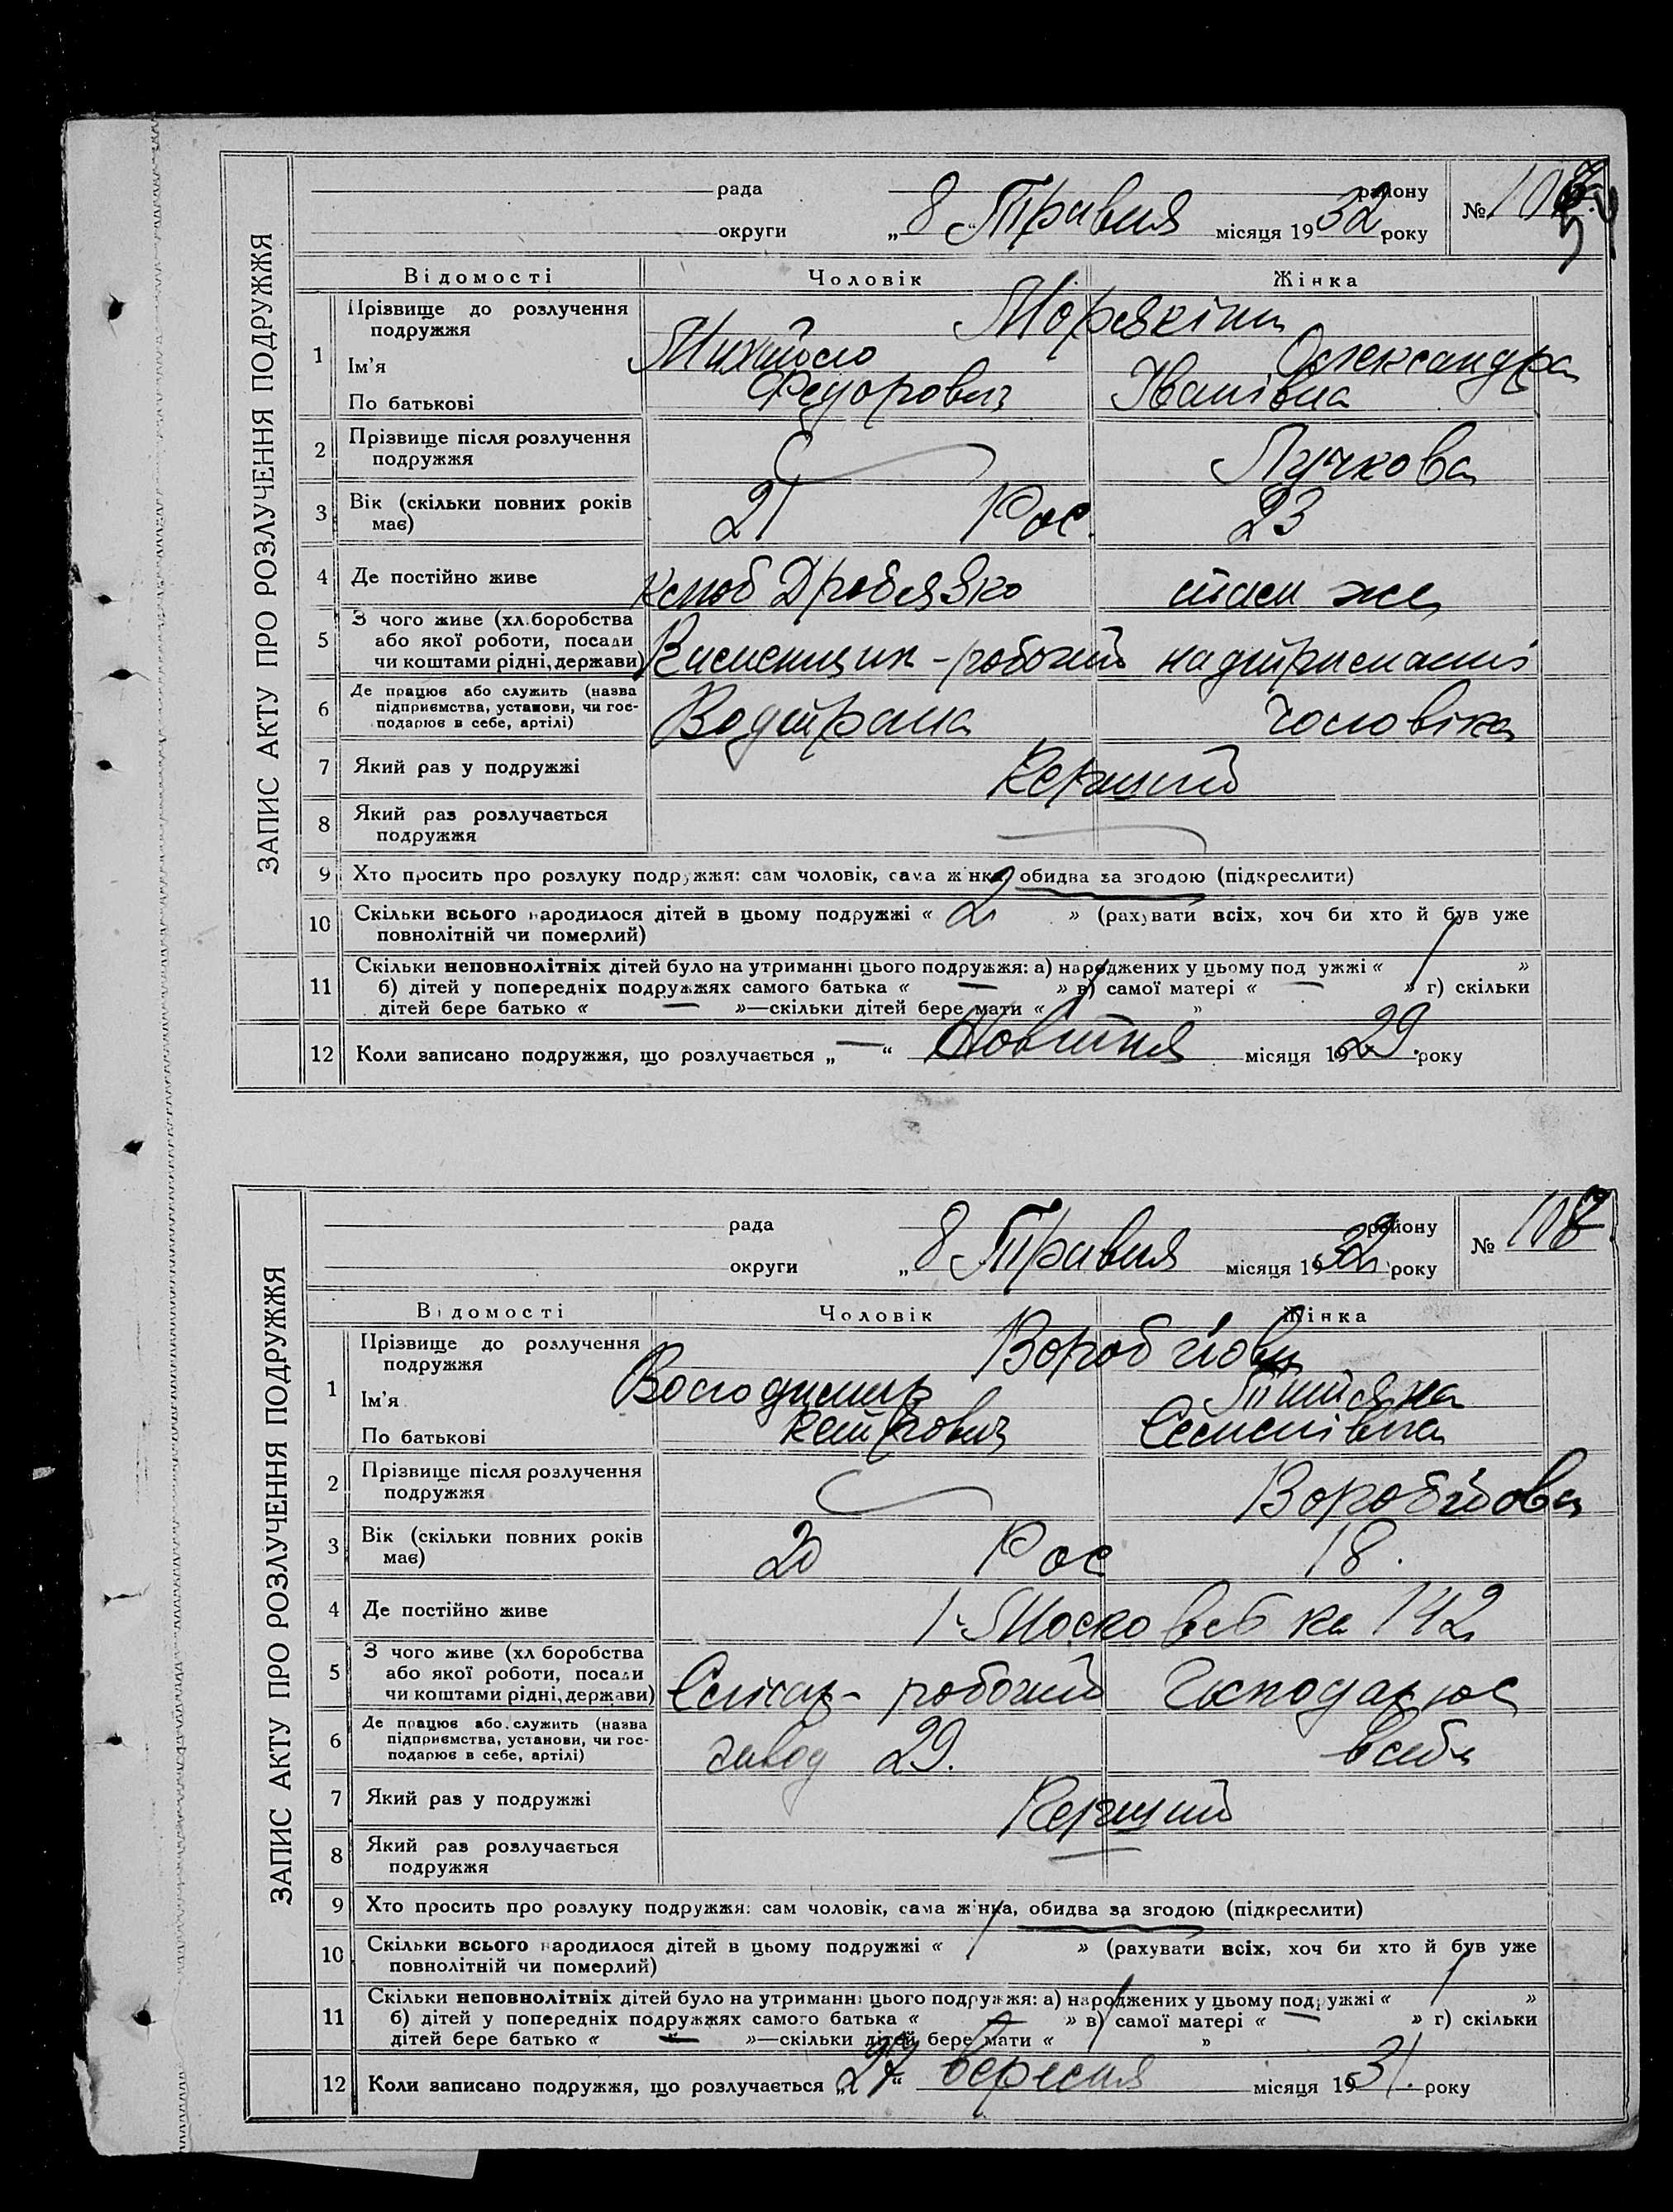 ЗАПИС АКТУ ПРО РОЗЛУЧЕННЯ ПОДРУЖЖЯ
рада району
округи „8“ Травня місяця 1932 року
№
Відомості Чоловік Жінка
1 Прізвище до розлучення подружжя Морякіни
Ім'я Михайло Олександра
По батькові Федорович Іванівна
2 Прізвище після розлучення подружжя Лучкова
3 Вік (скільки повних років має) 21 Рос. 23
4 Де постійно живе клюб Дробязко там же
5 З чого живе (хл.боробства
або якої роботи, посади
чи коштами рідні, держави) робочий на дітриманні
6 Де працює або служить (назва
підприємства, установи, чи гос-
подарює в себе, артілі) Водтрана чоловіка
7 Який раз у подружжі Перший
8 Який раз розлучається
подружжя
9 Хто просить про розлуку подружжя: сам чоловік, сама жінка, обидва за згодою (підкреслити)
10 Скільки всього народилося дітей в цьому подружжі « 2 » (рахувати всіх, хоч би хто й був уже
повнолітній чи померлий)
11 Скільки неповнолітніх дітей було на утриманні цього подружжя: а) народжених у цьому подружжі « 1 »
б) дітей у попередніх подружжях самого батька « — » в) самої матері « — » г) скільки
дітей бере батько « — »—скільки дітей бере мати « 1 »
12 Коли записано подружжя, що розлучається „—“ Жовтня місяця 1929. року
ЗАПИС АКТУ ПРО РОЗЛУЧЕННЯ ПОДРУЖЖЯ
рада району
округи „8 Травня місяця 1932 року
№ 107
Відомості Чоловік Жінка
1 Прізвище до розлучення подружжя Вороб'йови
Ім'я Володимир Тетяна
По батькові Петрович Семенівна
2 Прізвище після розлучення подружжя Вороб'йова
3 Вік (скільки повних років має) 20 Рос 18.
4 Де постійно живе 142
5 З чого живе (хл боробства
або якої роботи, посади
чи коштами рідні, держави) Слюсар- робочий Господарює
6 Де працює або служить (назва
підприємства, установи, чи гос-
подарює в себе, артілі) завод 29. в себе
7 Який раз у подружжі Перший
8 Який раз розлучається
подружжя
9 Хто просить про розлуку подружжя: сам чоловік, сама жінка, обидва за згодою (підкреслити)
10 Скільки всього народилося дітей в цьому подружжі « 1 » (рахувати всіх, хоч би хто й був уже
повнолітній чи померлий)
11 Скільки неповнолітніх дітей було на утриманні цього подружжя: а) народжених у цьому подружжі « 1 »
б) дітей у попередніх подружжях самого батька « — » в) самої матері « — » г) скільки
дітей бере батько « — »—скільки дітей бере мати « 1 »
12 Коли записано подружжя, що розлучається „27“ вересня місяця 1931. року